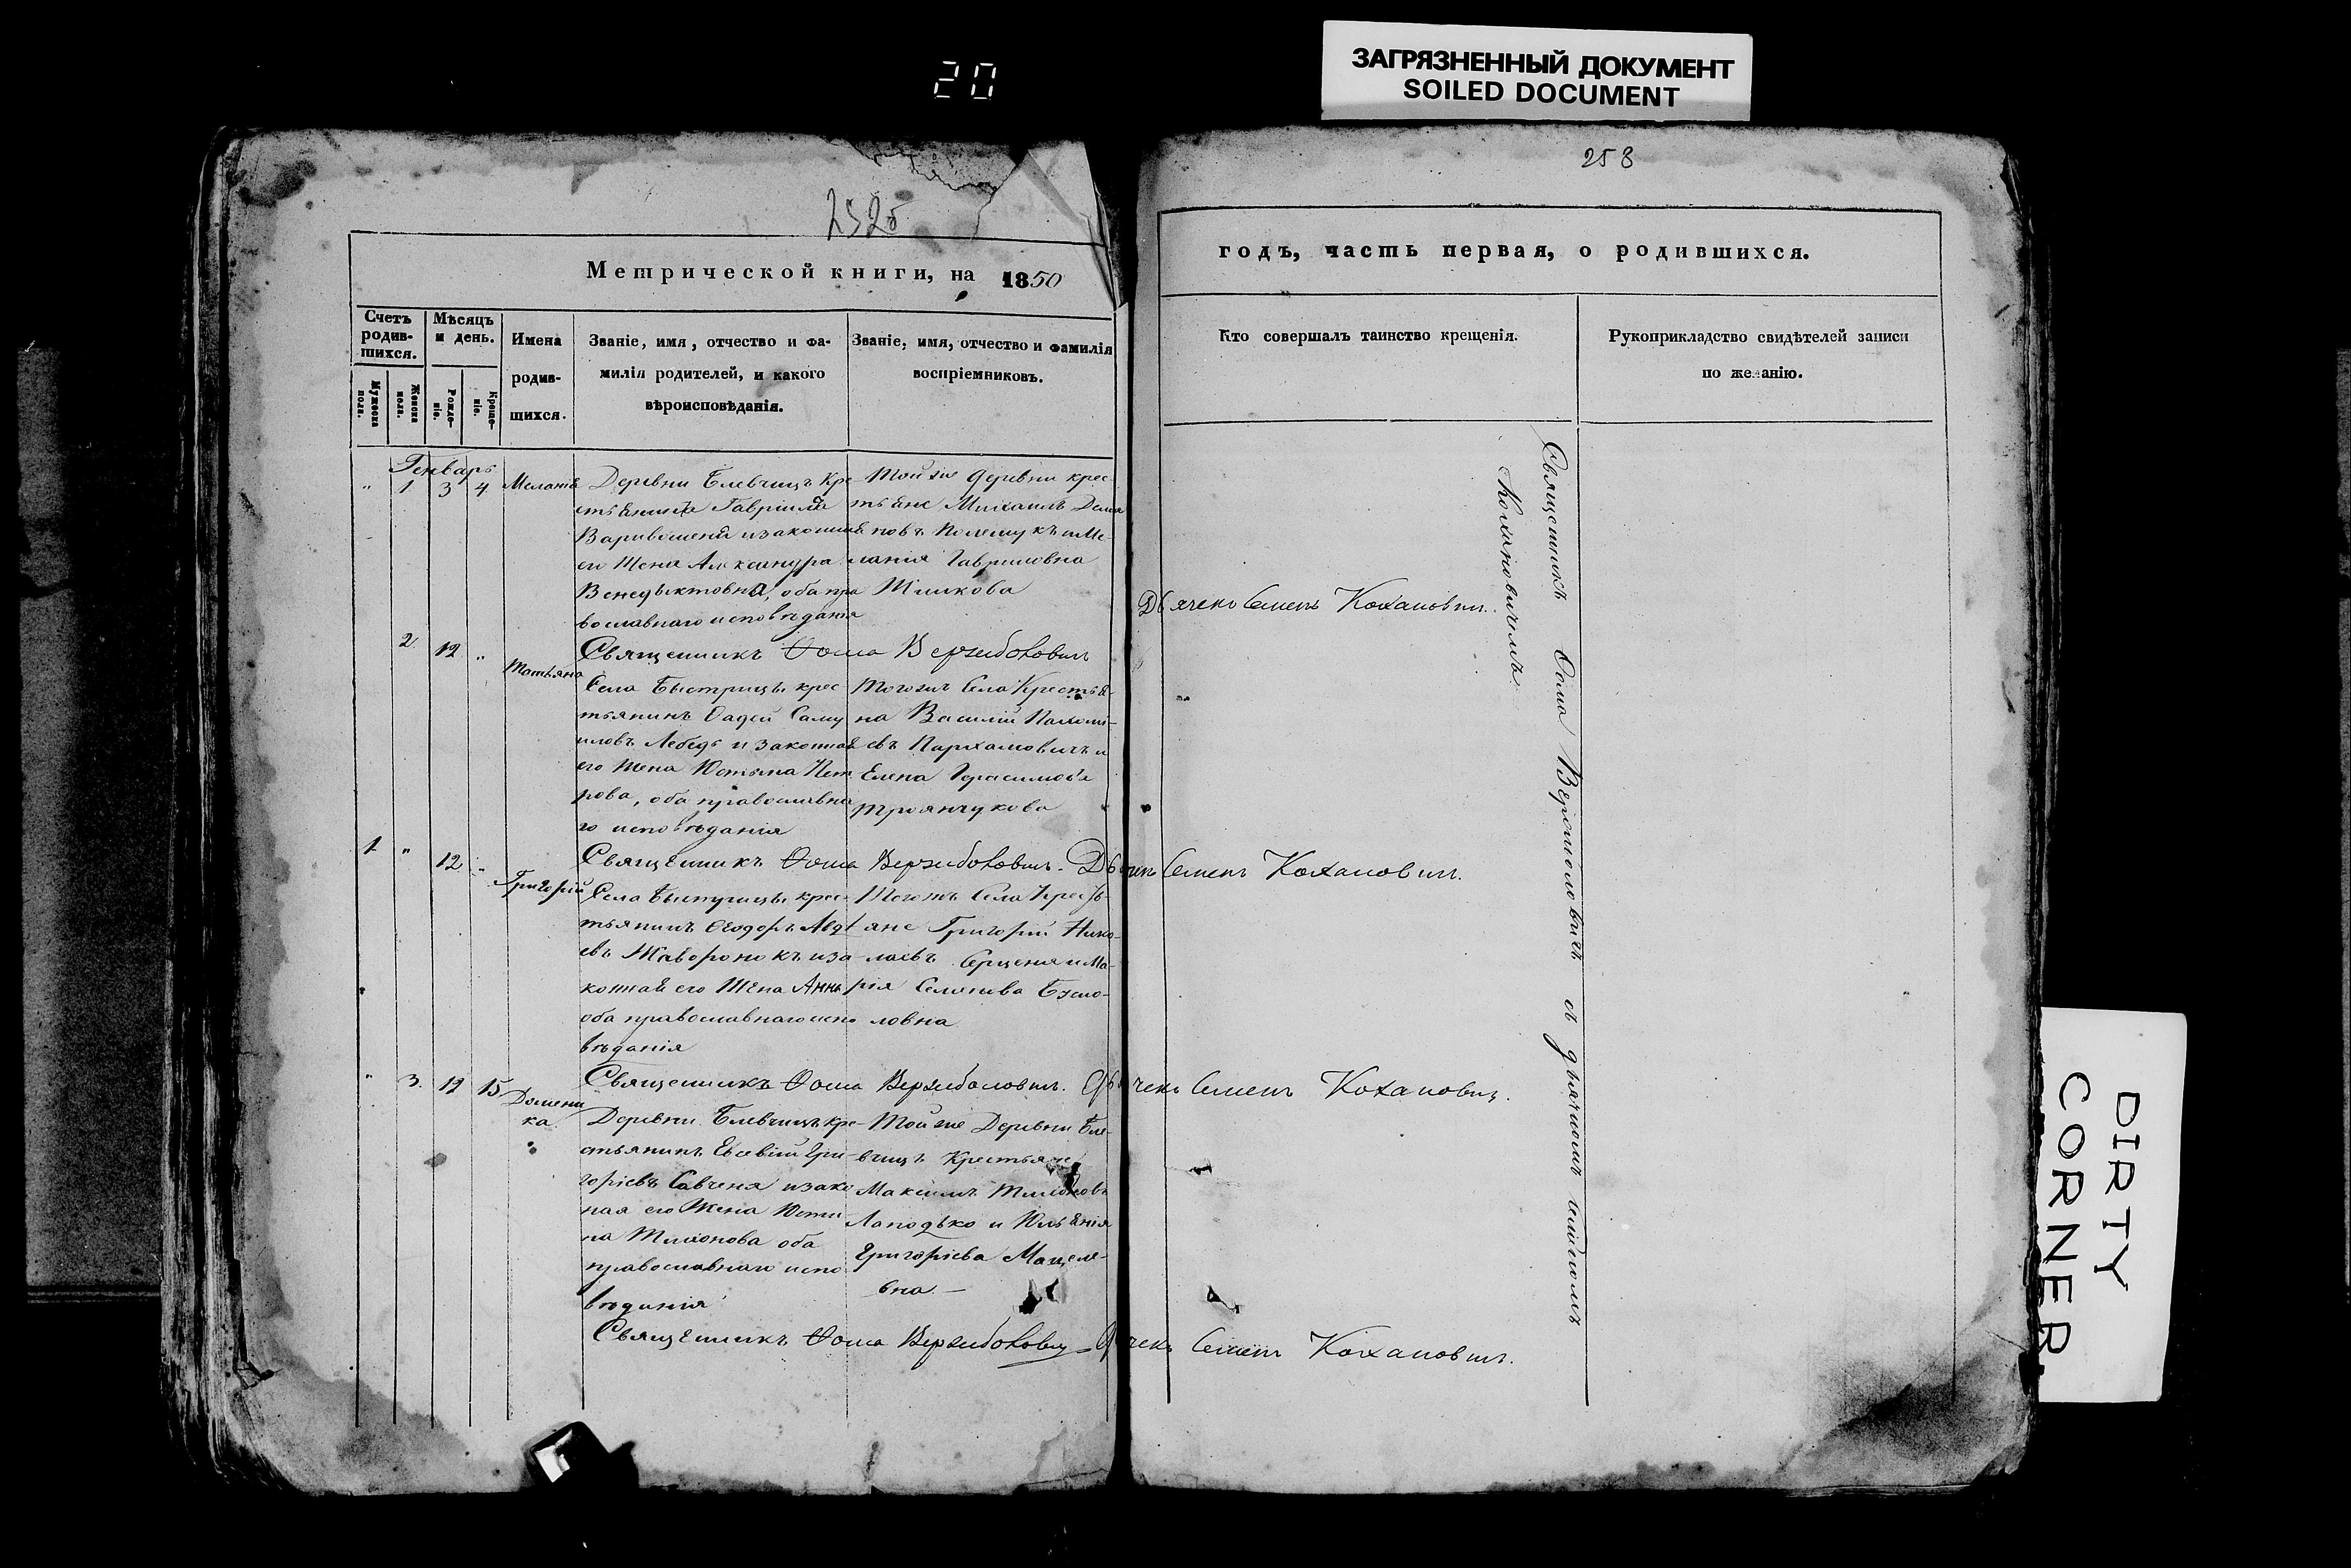 20
ЗАГРЯЗНЕННЫЙ ДОКУМЕНТ
SOILED DOCUMENT
258
Метрической книги, на 1850
годъ, часть первая, о родившихся.
Счетъ родившихся.
Мужеска пола.
Женска пола.
Мѣсяцъ и день.
Рожденіе.
Крещеніе.
Имена
родив-
шихся.
Званіе, имя, отчество и фа-
милія родителей, и какого
вѣроисповѣданія.
Званіе, имя, отчество и фамилія
воспріемниковъ.
Кто совершалъ таинство крещенія.
Рукоприкладство свидѣтелей записи
по желанію.
Генварь
" 1 3 4
Деревни Блевчицъ кре-
Гавриила
и законная
его жена Александра
Венедыктовна, оба пра
вославнаго исповѣданія
Той же деревни крес-
тьяне Михаилъ
Гавриловна
Священникъ Ѳома Вержболовичъ
Дьячекъ Семенъ Кохановичъ.
2 12 "
Татьяна
Села Быстрицы крес-
тьянинъ Ѳадей Саму
иловъ Лебедь и законная
его жена Юстына Пет
рова, оба православна
го исповѣданія
Тогожъ Села Крестья-
на Василій
евъ Пархамовичъ и
Елена Герасимов
Троянчукова
Священникъ Ѳома Вержболовичъ. Дьячекъ Семенъ Кохановичъ.
1 " 12 "
Григорій
Села Быстрицы крес-
тьянинъ Ѳеодоръ Авд
евъ Жаворонокъ и за-
конная его жена Анна
оба православнаго испо
вѣданія
Тогожъ Села Кресть-
яне Григорій Нико-
лаевъ и Ма-
рія
ловна
Священникъ Ѳома Вержболовичъ. Дьячекъ Семенъ Кохановичъ.
" 3 12 15
Домени
ка
Деревни Блевчицъ кре-
стьянинъ Евсевій Гри-
горіевъ Савченя и зако
ная его жена Юсти
на Тимонова оба
православнаго испо
вѣданія
Той же Деревни Бле-
вчицъ Крестьяне
Максимъ Тимоновъ
Лаподько и Юльянія
Григоріева
вна
Священникъ Ѳома Вержболовичъ Дьячекъ Семенъ Кохановичъ.
Священникъ Ѳома Вержболовичъ съ дьячкомъ Семеномъ
Кохановичемъ
DIRTY
CORNER